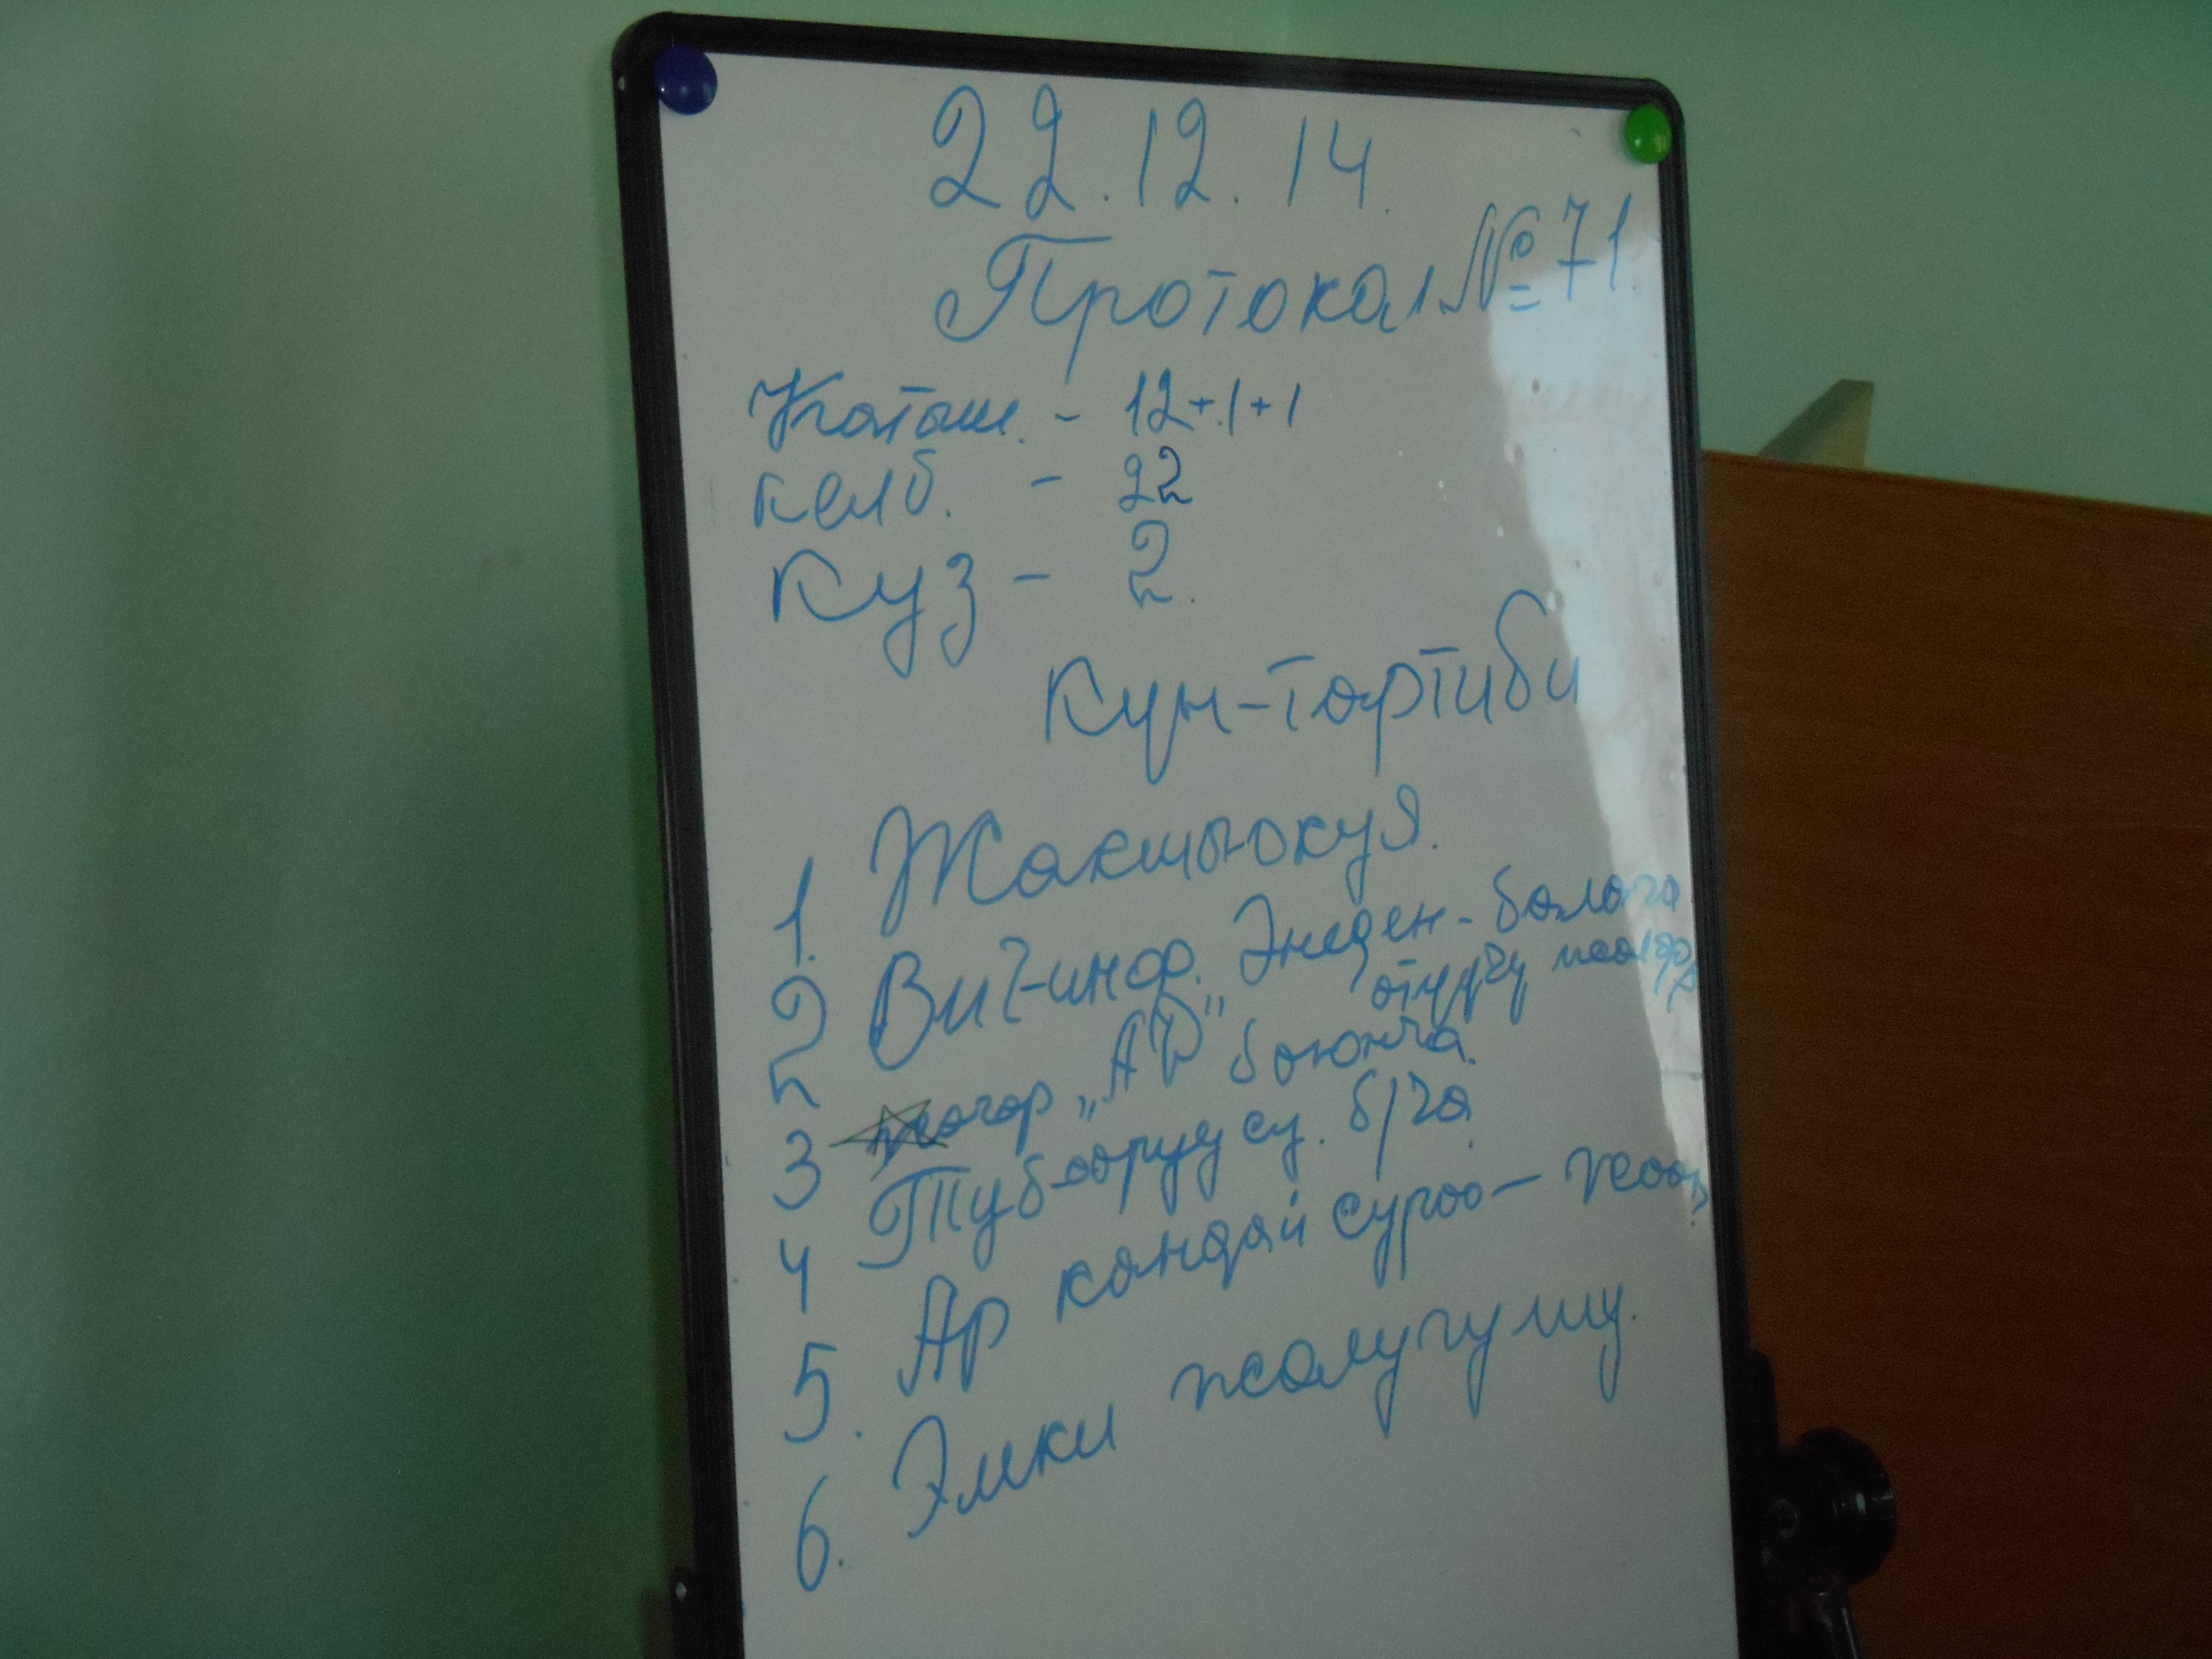 22.12.14.
Протокал №71.
Катыш. - 12+1+1
келб. - 22
Куз - 2.
Кун-тартиби
1. Жакшы окуя.
2 Вич-инф. Энеден-балага
отуучу жолдор
3 "АР" боюнча.
4 Туб-оорууусу. б/ча.
5. Ар кандай суроо-жооп.
6. Эмки жолугушу.